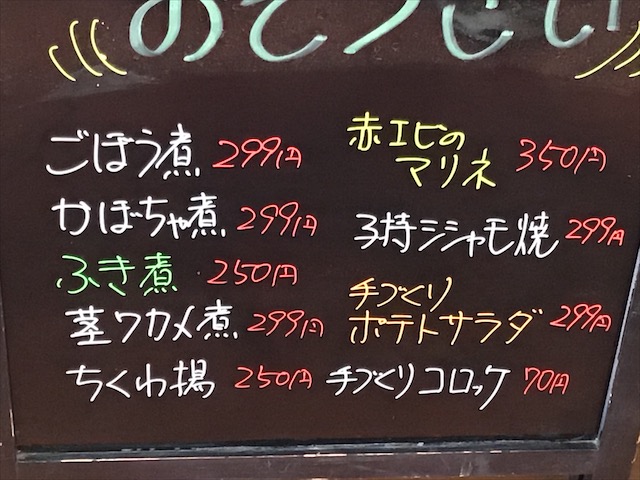 おそうざい
ごぼう煮 299円
かぼちゃ煮 299円
ふき煮 250円
茎ワカメ煮 299円
ちくわ揚 250円
赤エビの
マリネ 350円
子持シシャモ焼 299円
手づくり
ポテトサラダ 299円
手づくりコロッケ 70円